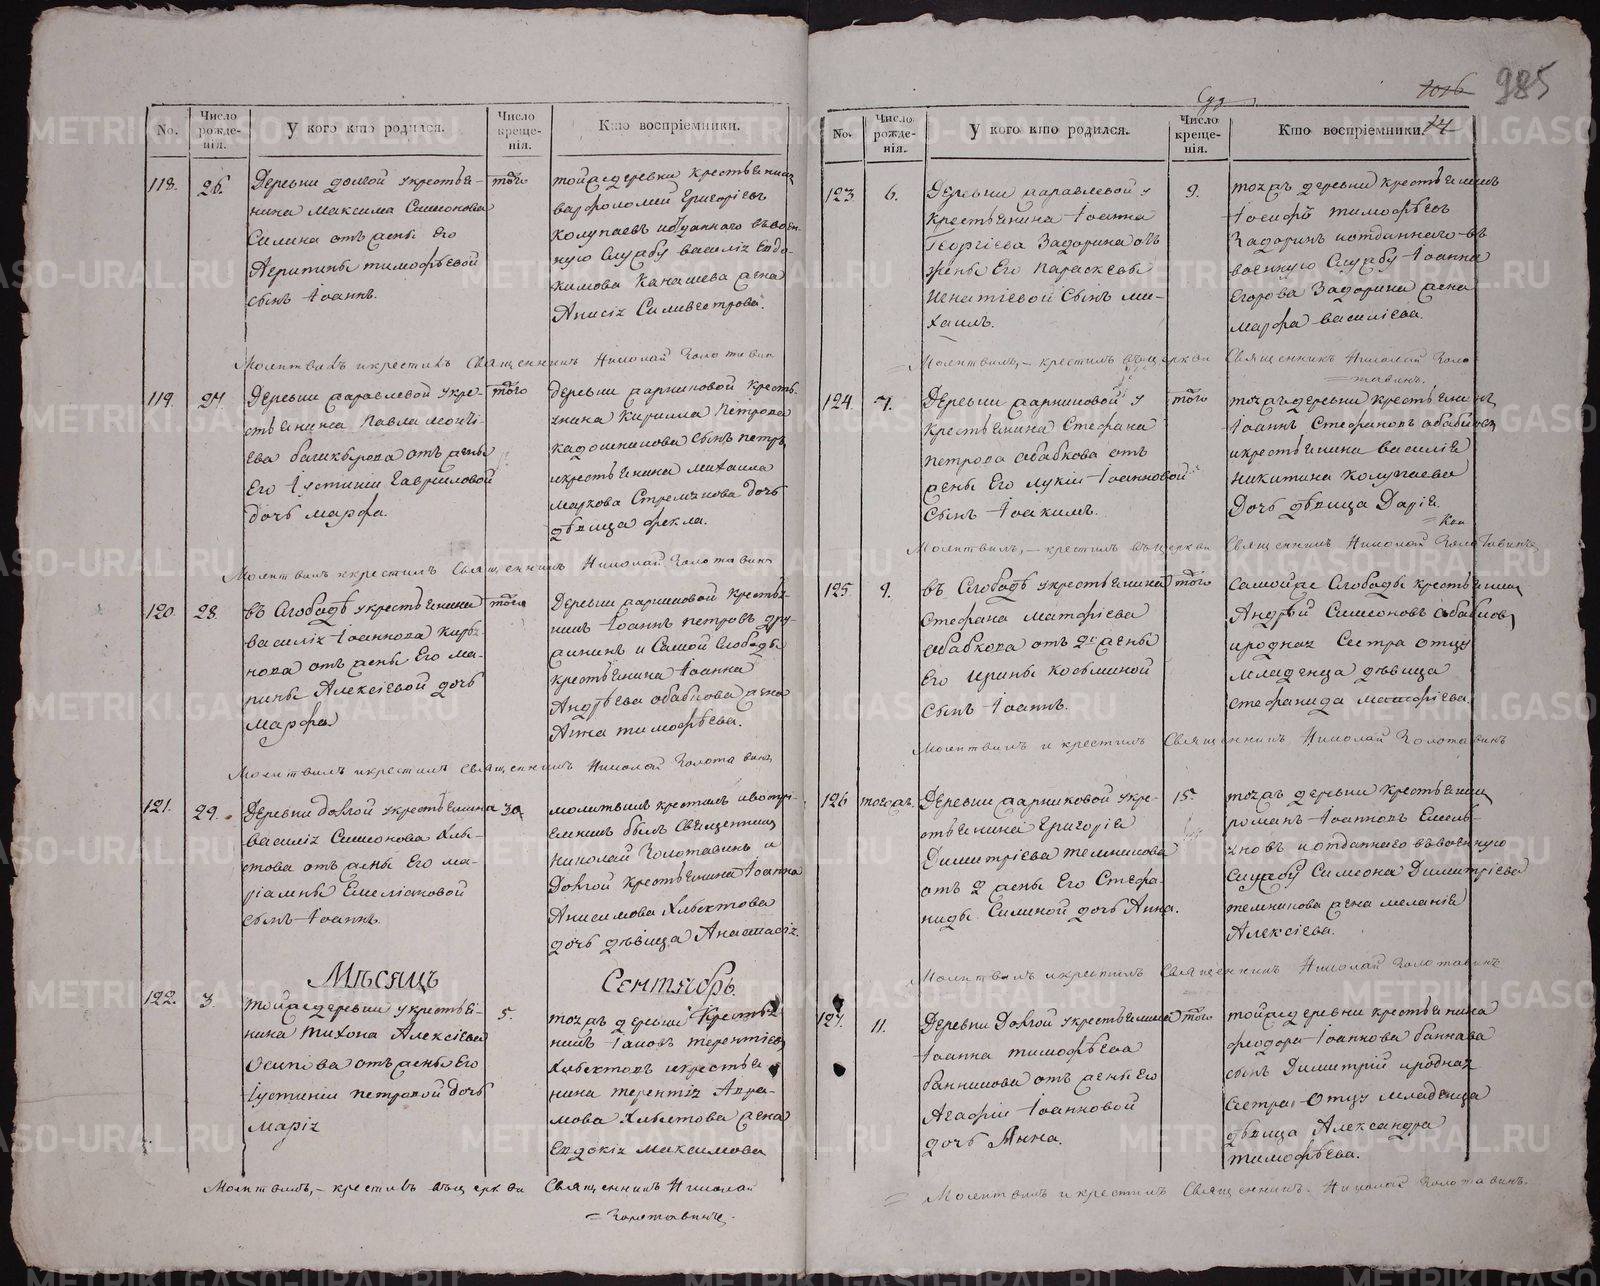 985
1016
No.
Число рожде- нія.
У кого кто родился.
Число креще- нія.
Кто воспріемники.
118.
26.
Деревни долгой укрестья-
нина Максима Симеонова
Силина отъ жены его
Акрипины тимофѣевой
сынъ Іоаннъ.
того
тойжедеревни крестьянинъ
варфоломей Григоріевъ
колупаевъ
ную Службу василія Евдо-
кимова Канашева жена
Анисія Силивестрова.
Молитвилъ икрестилъ Священникъ Николай Золотавин
119.
27.
Деревни журавлевой укре-
стьянина Павла
ева башкырова отъ жены
Его Іустиніи Гаврииловой
дочь марфа.
того
деревни жарниковой кресть-
янина Кирилла Петрова
кадошникова сынъ петръ
икрестьянина михаила
Маркова Стремъкова дочь
дѣвица фекла.
Молитвилъ икрестилъ Священникъ Николай Золотавинъ
120
28.
въ Слободѣ укрестьянина
василія Іоаннова Киръя-
нова отъ жены Его ма-
рины Алексіевой дочь
Марфа
того
Деревни жарниковой крестья-
нинъ Іоаннъ петровъ дру-
жининъ и Самой Слободы
крестьянина Іоанна
Андрѣева абабкова жена
Анна тимофѣева.
Молитвилъ икрестилъ Священникъ Николай Золотавинъ
121.
29.
Деревни долгой укрестьянина
василія Симеонова Хлыс-
това отъ жены Его ма-
ріамны Емеліановой
сынъ Іоаннъ.
30
молитвилъ крестилъ ивоспрі-
емникъ былъ Священникъ
Николай Золотавинъ и
Долгой крестьянина Іоанна
Анисимова
дочь дѣвица Анастасія.
Мѣсяцъ Сентябрь.
122.
3.
тойжедеревни укрестья-
нина Тихона Алексіева
Осипова отъ жены Его
Іустиніи петровой дочь
Марія
5.
тояжъ деревни Крестья-
нинъ Іаковъ терентіевъ
икрестья-
нина терентія Авра-
мова жена
Евдокія Максимова
Молитвилъ,- крестилъ въцеркви Священникъ Николай
= Золотавинъ.
No.
Число рожде- нія.
У кого кто родился.
Число креще- нія.
Кто воспріемники.
14
123
6.
Деревни журавлевой у
крестьянина Іоанна
Георгіева Задорина отъ
жены Его Параскевы
Игнатіевой Сынъ ми-
хаилъ.
9.
тояжъ деревни крестьянинъ
Іосифъ тимофѣевъ
Задоринъ иотданнаго въ
военную Службу Іоанна
Егорова Задорина жена
марфа василіева.
= Молитвилъ,- крестилъ въцеркви Священникъ Николай Золо-
= тавинъ.
124.
7.
Деревни жарниковой у
крестьянина Стефана
Петрова абабкова отъ
жены Его Лукіи Іоанновой
Сынъ Іоакимъ.
того
тояжъдеревни крестьянинъ
Іоаннъ Стефановъ абабковъ
икрестьянина василія
Никитина Колупаева
Дочь дѣвица Дарія.
Молитвилъ,- крестилъ въцеркви Священникъ Николай Золотавинъ
125
9.
въ Слободѣ укрестьянина
Стефана матфіева
абабкова отъ 2й жены
Его Ирины косьминой
Сынъ Іоаннъ.
того
самойже Слободы крестьянинъ
Андрѣй Симеоновъ абабковъ
иродная Сестра отцу
младенца дѣвица
Стефанида матфіева.
Молитвилъ и крестилъ Священникъ Николай Золотавинъ
126
тогожъ
Деревни жарниковой укре-
стьянина Григорія
Димитріева темникова
отъ 2 жены Его Стефа-
ниды Силиной дочь Анна.
15.
тояжъ деревни крестьянинъ
романъ Іоанновъ Емель-
яновъ иотданнаго въвоенную
Службу Симеона Димитріева
темникова жена меланія
Алексіева.
Молитвилъ икрестилъ Священникъ Николай Золотавинъ
127.
11.
Деревни Долгой укрестьянина
Іоанна тимофѣева
банникова отъ жены Его
Агафіи Іоанновой
дочь Анна.
того
тойжедеревни крестьянина
феодора Іоаннова
сынъ Димитрій иродная
Сестра Отцу младенца
дѣвица Александра
тимофѣева.
= Молитвилъ икрестилъ Священникъ Николай Золотавинъ.
METRIKI.GASO-URAL.RU